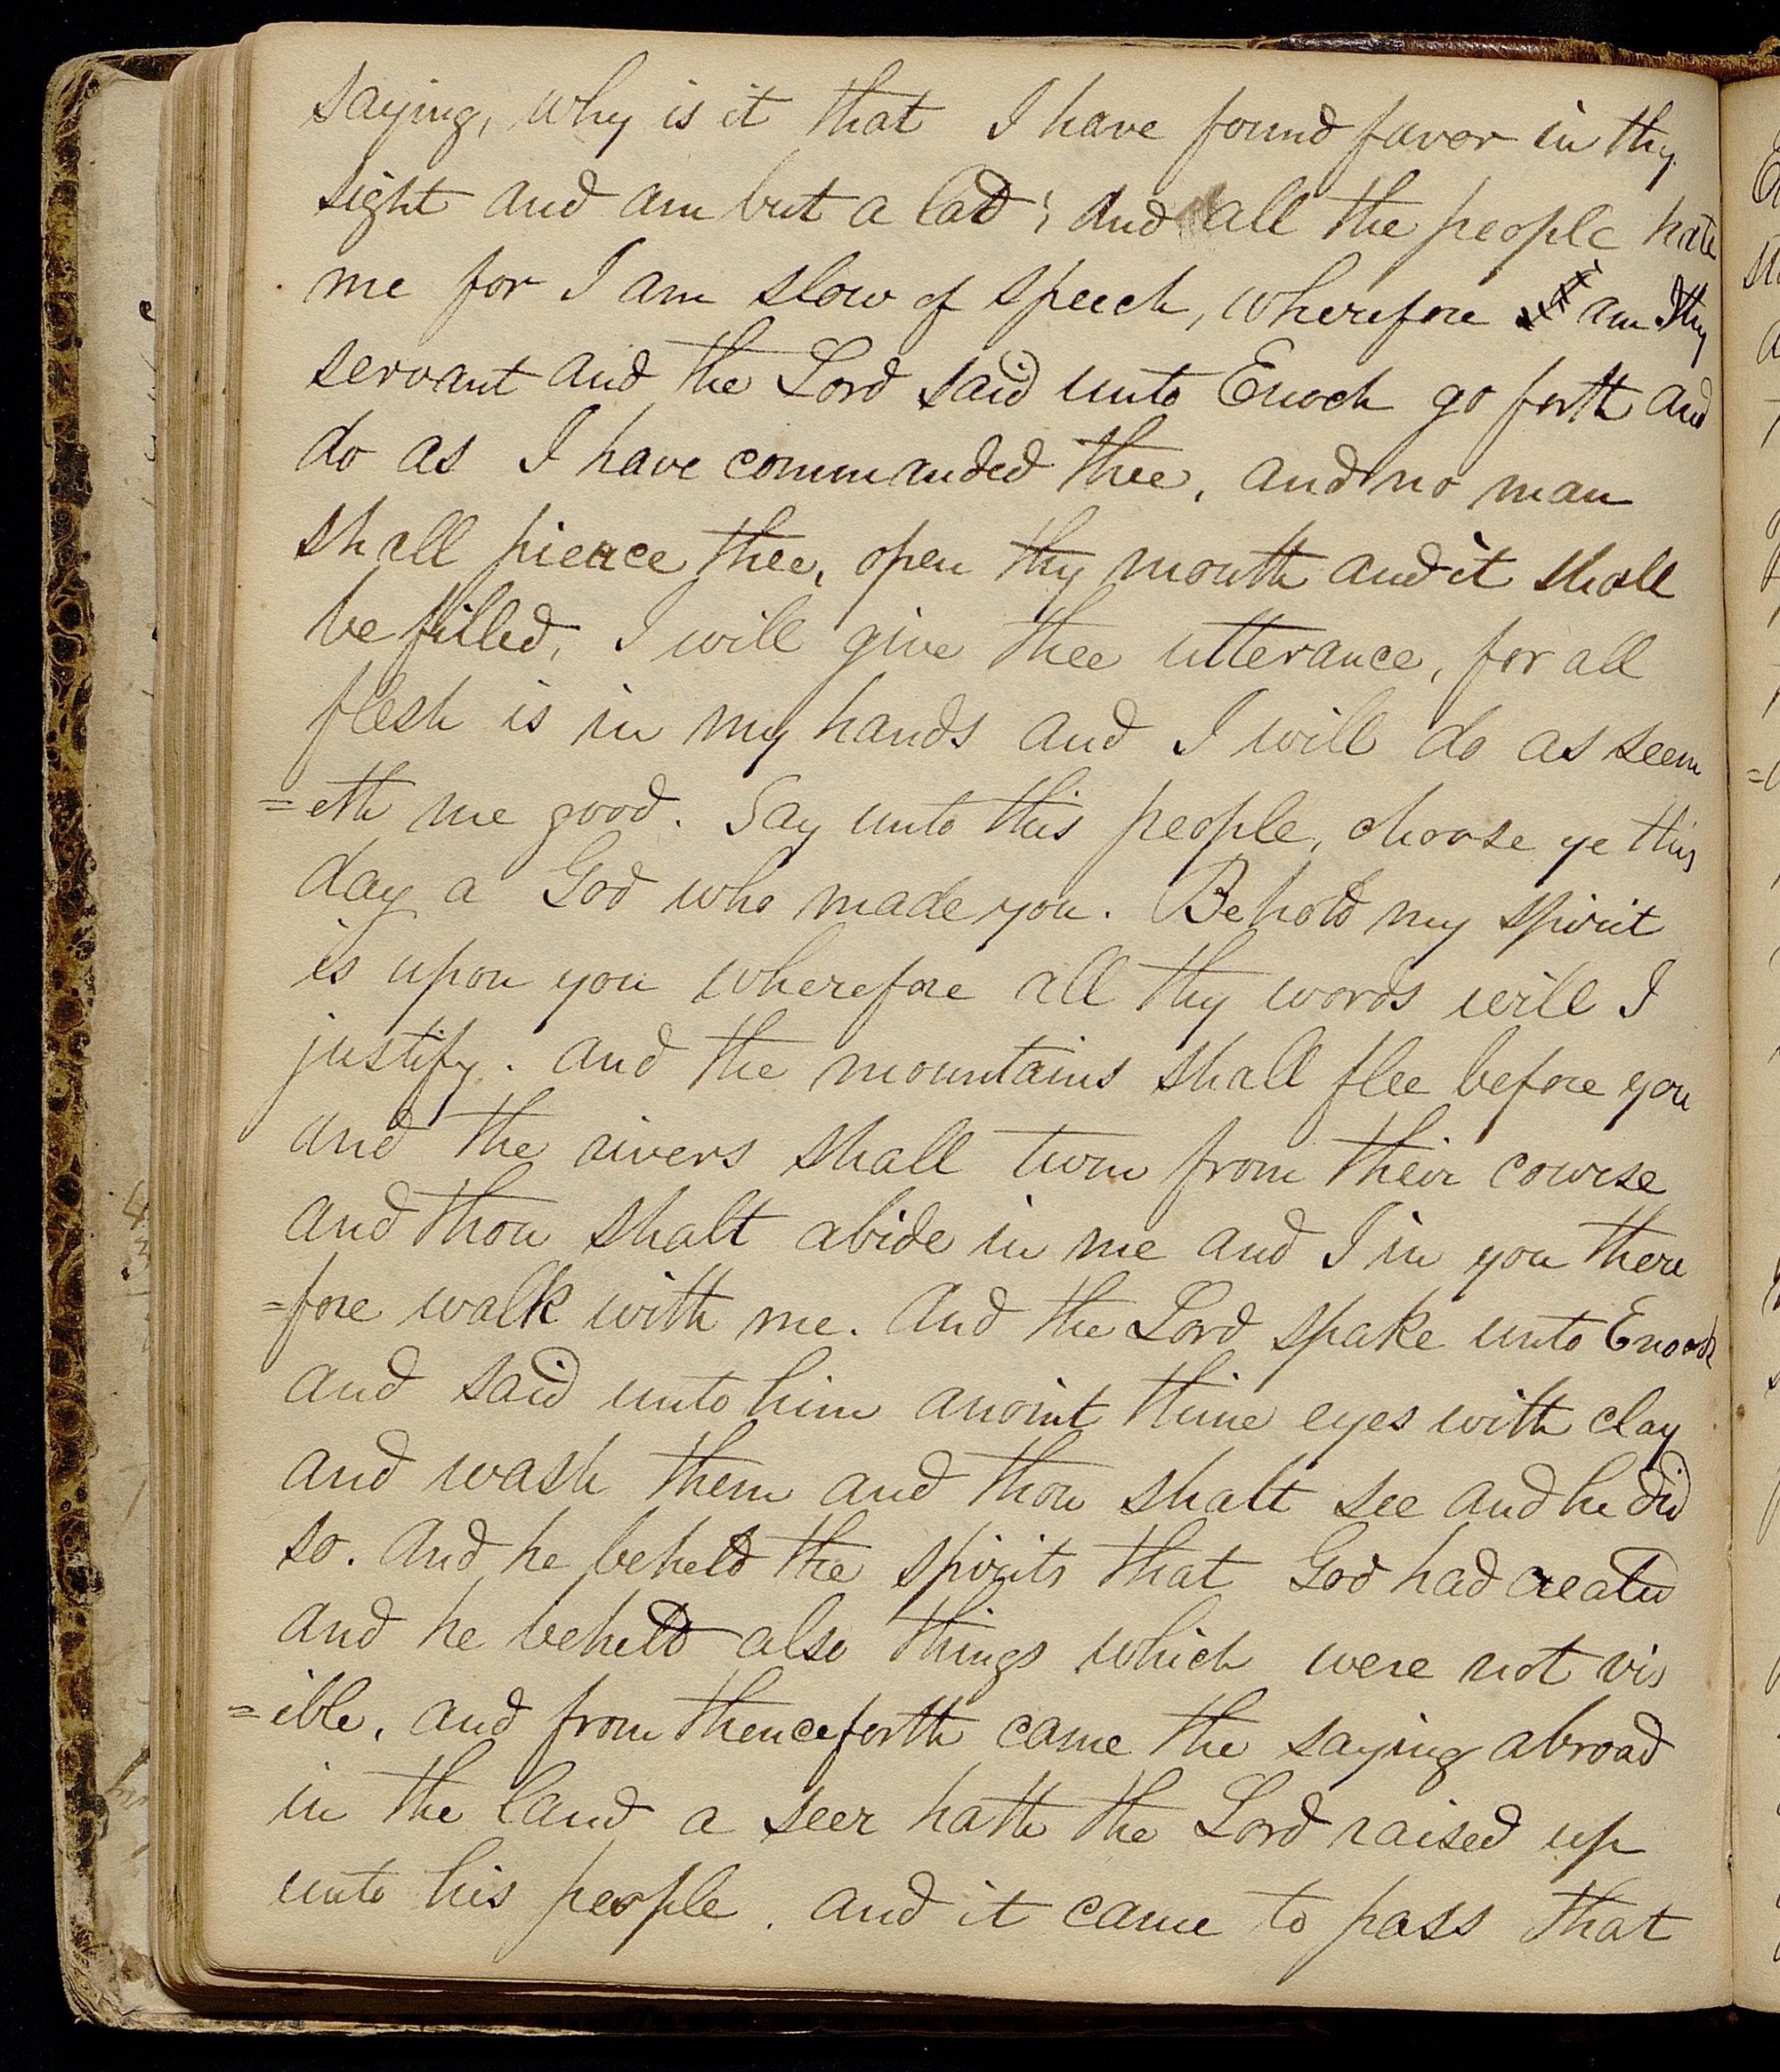 saying, why is it that I have found favor in thy
sight and am but a lad; and all the people hate
me for I am slow of speech, wherefore am I thy
servant and the Lord said unto Enoch go forth and
do as I have commanded thee, and no man
shall pierce thee, open thy mouth and it shall
be filled, I will give thee utterance, for all
flesh is in my hands and I will do as seem
=eth me good. Say unto this people, choose ye this
day a God who made you. Behold my spirit
is upon you wherefore all thy words will I
justify. and the mountains shall flee before you
and the rivers shall turn from their course
and thou shalt abide in me and I in you there
=fore walk with me. And the Lord spake unto Enoch
and said unto him anoint thine eyes with clay
and wash them and thou shalt see and he did
so. And he beheld the spirits that God had created
and he beheld also things which were not vis
=ible, and from thenceforth came the saying abroad
in the land a seer hath the Lord raised up
unto his people. and it came to pass that